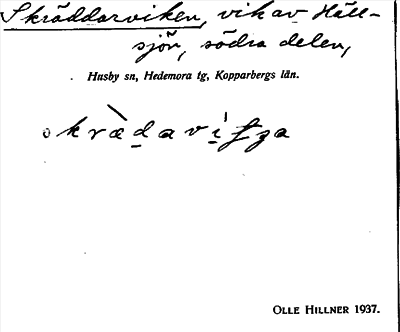 Skräddarviken, vik av Häll-
sjön, södra delen,
Husby sn, Hedemora tg, Kopparbergs län.
OLLE HILLNER 1937.